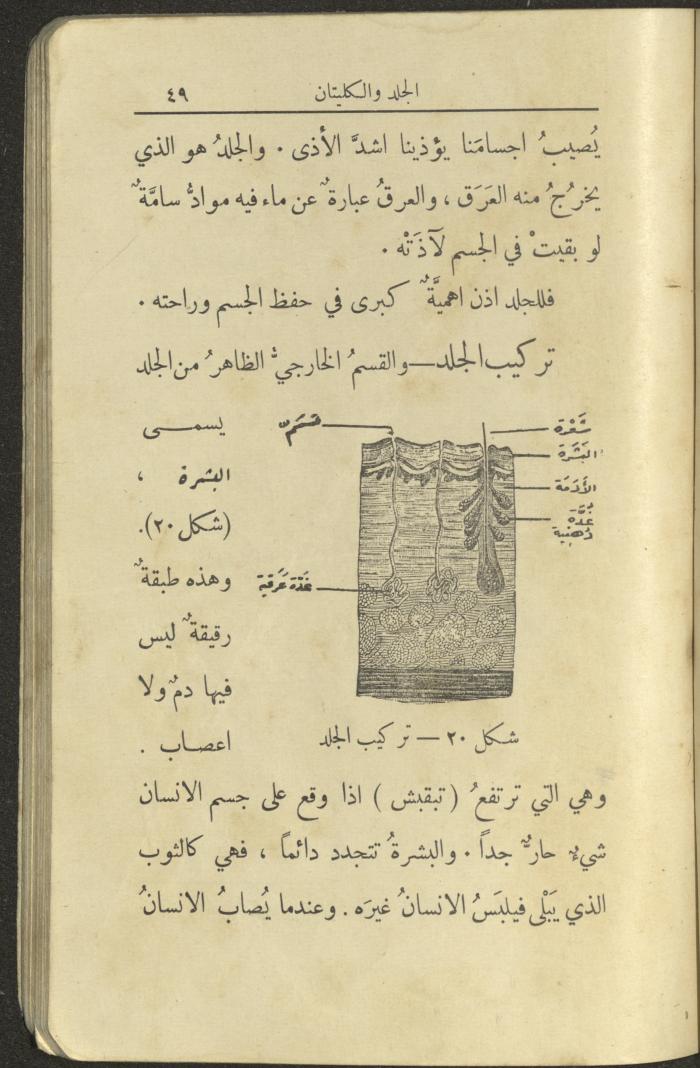 الجلد والكليتان ٤٩
يُصيبُ اجسامَنا يؤذينا اشدَّ الأذى . والجلدُ هو الذي
يخرُجُ منه العَرَق ، والعرقُ عبارةٌ عن ماء فيه موادُّ سامَّةٌ
لو بقيتْ في الجسم لآذَتْه .
فللجلد اذن اهميَّةٌ كبرى في حفظ الجسم وراحته .
تركيب الجلد—والقسمُ الخارجيُّ الظاهرُ من الجلد
يسمى
البشرة ،
(شكل ٢٠).
وهذه طبقةٌ
رقيقةٌ ليس
فيها دمٌ ولا
اعصاب .
شَعْرَة
البَشَرَة
الأَدَمَة
غدّة
دُهنية
غدّة عَرَقية
شكل ٢٠ — تركيب الجلد
وهي التي ترتفعُ ( تبقبش ) اذا وقع على جسم الانسان
شيءٌ حارٌّ جداً . والبشرةُ تتجدد دائماً ، فهي كالثوب
الذي يَبْلى فيلبَسُ الانسانُ غيرَه . وعندما يُصابُ الانسانُ